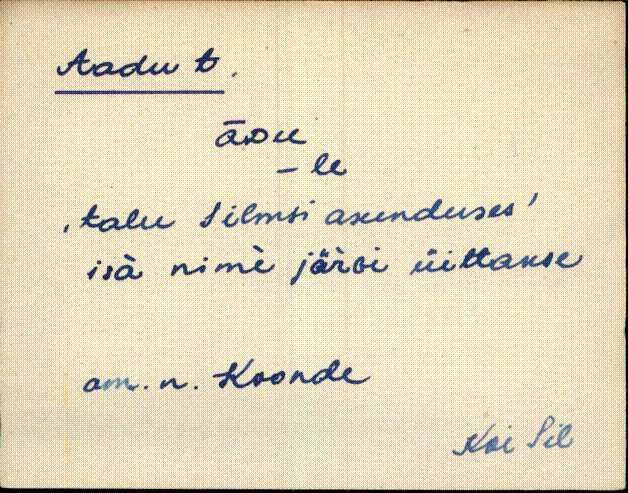 Aadu t.
āDu
– le
'talu Silmsi asunduses'
isà nimè järɢi üittakse
am. n. Koonde
Koi Sil